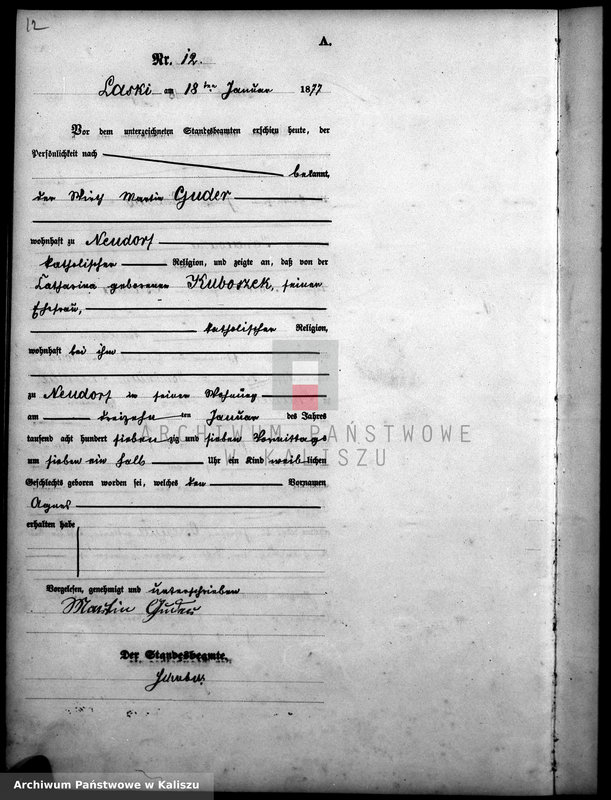 12
A.
Nr. 12.
Laski am 18ten Januar 1877
Vor dem unterzeichneten Standesbeamten erschien heute, der
Persönlichkeit nach
bekannt,
der Wirth Martin Guder
wohnhaft zu Neudorf
katholischer Religion, und zeigte an, daß von der
Catharina geborenen Kuboszek, seiner
Ehefrau,
katholischer Religion,
wohnhaft bei ihm
zu Neudorf in seiner Wohnung
am dreizehnten Januar des Jahres
tausend acht hundert siebenzig und sieben Vormittags
um sieben ein halb Uhr ein Kind weiblichen
Geschlechts geboren worden sei, welches den Vornamen
Agnes
erhalten habe
Vorgelesen, genehmigt und unterschrieben
Martin Guder
Der Standesbeamte.
ARCHIWUM PAŃSTWOWE
W KALISZU
Archiwum Państwowe w Kaliszu